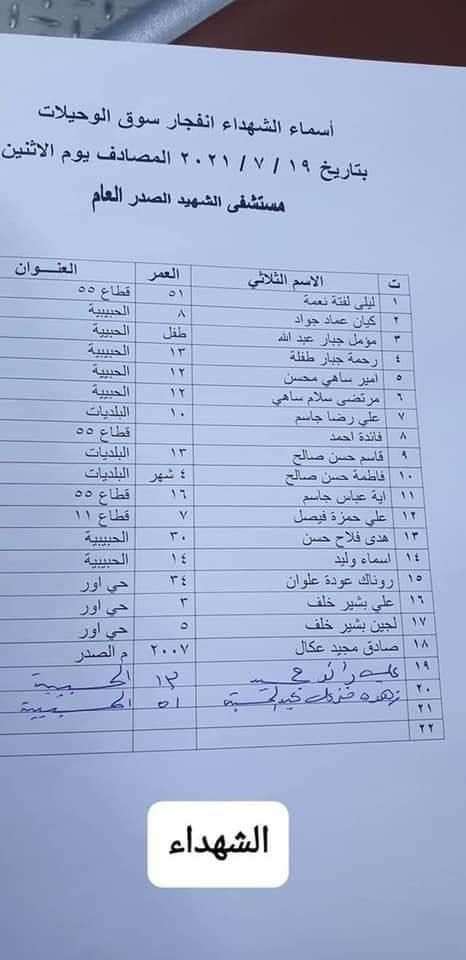 أسماء الشهداء انفجار سوق الوحيلات
بتاريخ ١٩ / ٧ / ٢٠٢١ المصادف يوم الاثنين
مستشفى الشهيد الصدر العام
ت الاسم الثلاثي العمر العنـــوان
١ ليلى لفتة نعمة ٥١ قطاع ٥٥
٢ كيان عماد جواد ٨ الحبيبية
٣ مؤمل جبار عبد الله طفل الحبيبية
٤ رحمة جبار طفلة ١٣ الحبيبية
٥ امير ساهي محسن ١٢ الحبيبية
٦ مرتضى سلام ساهي ١٢ الحبيبية
٧ علي رضا جاسم ١٠ البلديات
٨ فائدة احمد قطاع ٥٥
٩ قاسم حسن صالح ١٣ البلديات
١٠ فاطمة حسن صالح ٤ شهر البلديات
١١ اية عباس جاسم ١٦ قطاع ٥٥
١٢ علي حمزة فيصل ٧ قطاع ١١
١٣ هدى فلاح حسن ٣٠ الحبيبية
١٤ اسماء وليد ١٤ الحبيبية
١٥ روناك عودة علوان ٣٤ حي اور
١٦ علي بشير خلف ٣ حي اور
١٧ لجين بشير خلف ٥ حي اور
١٨ صادق مجيد عكال ٢٠٠٧ م الصدر
١٩ رائد ١٣ الحبيبية
٢٠ زهده ٥١ الحبيبية
٢١
٢٢
الشهداء